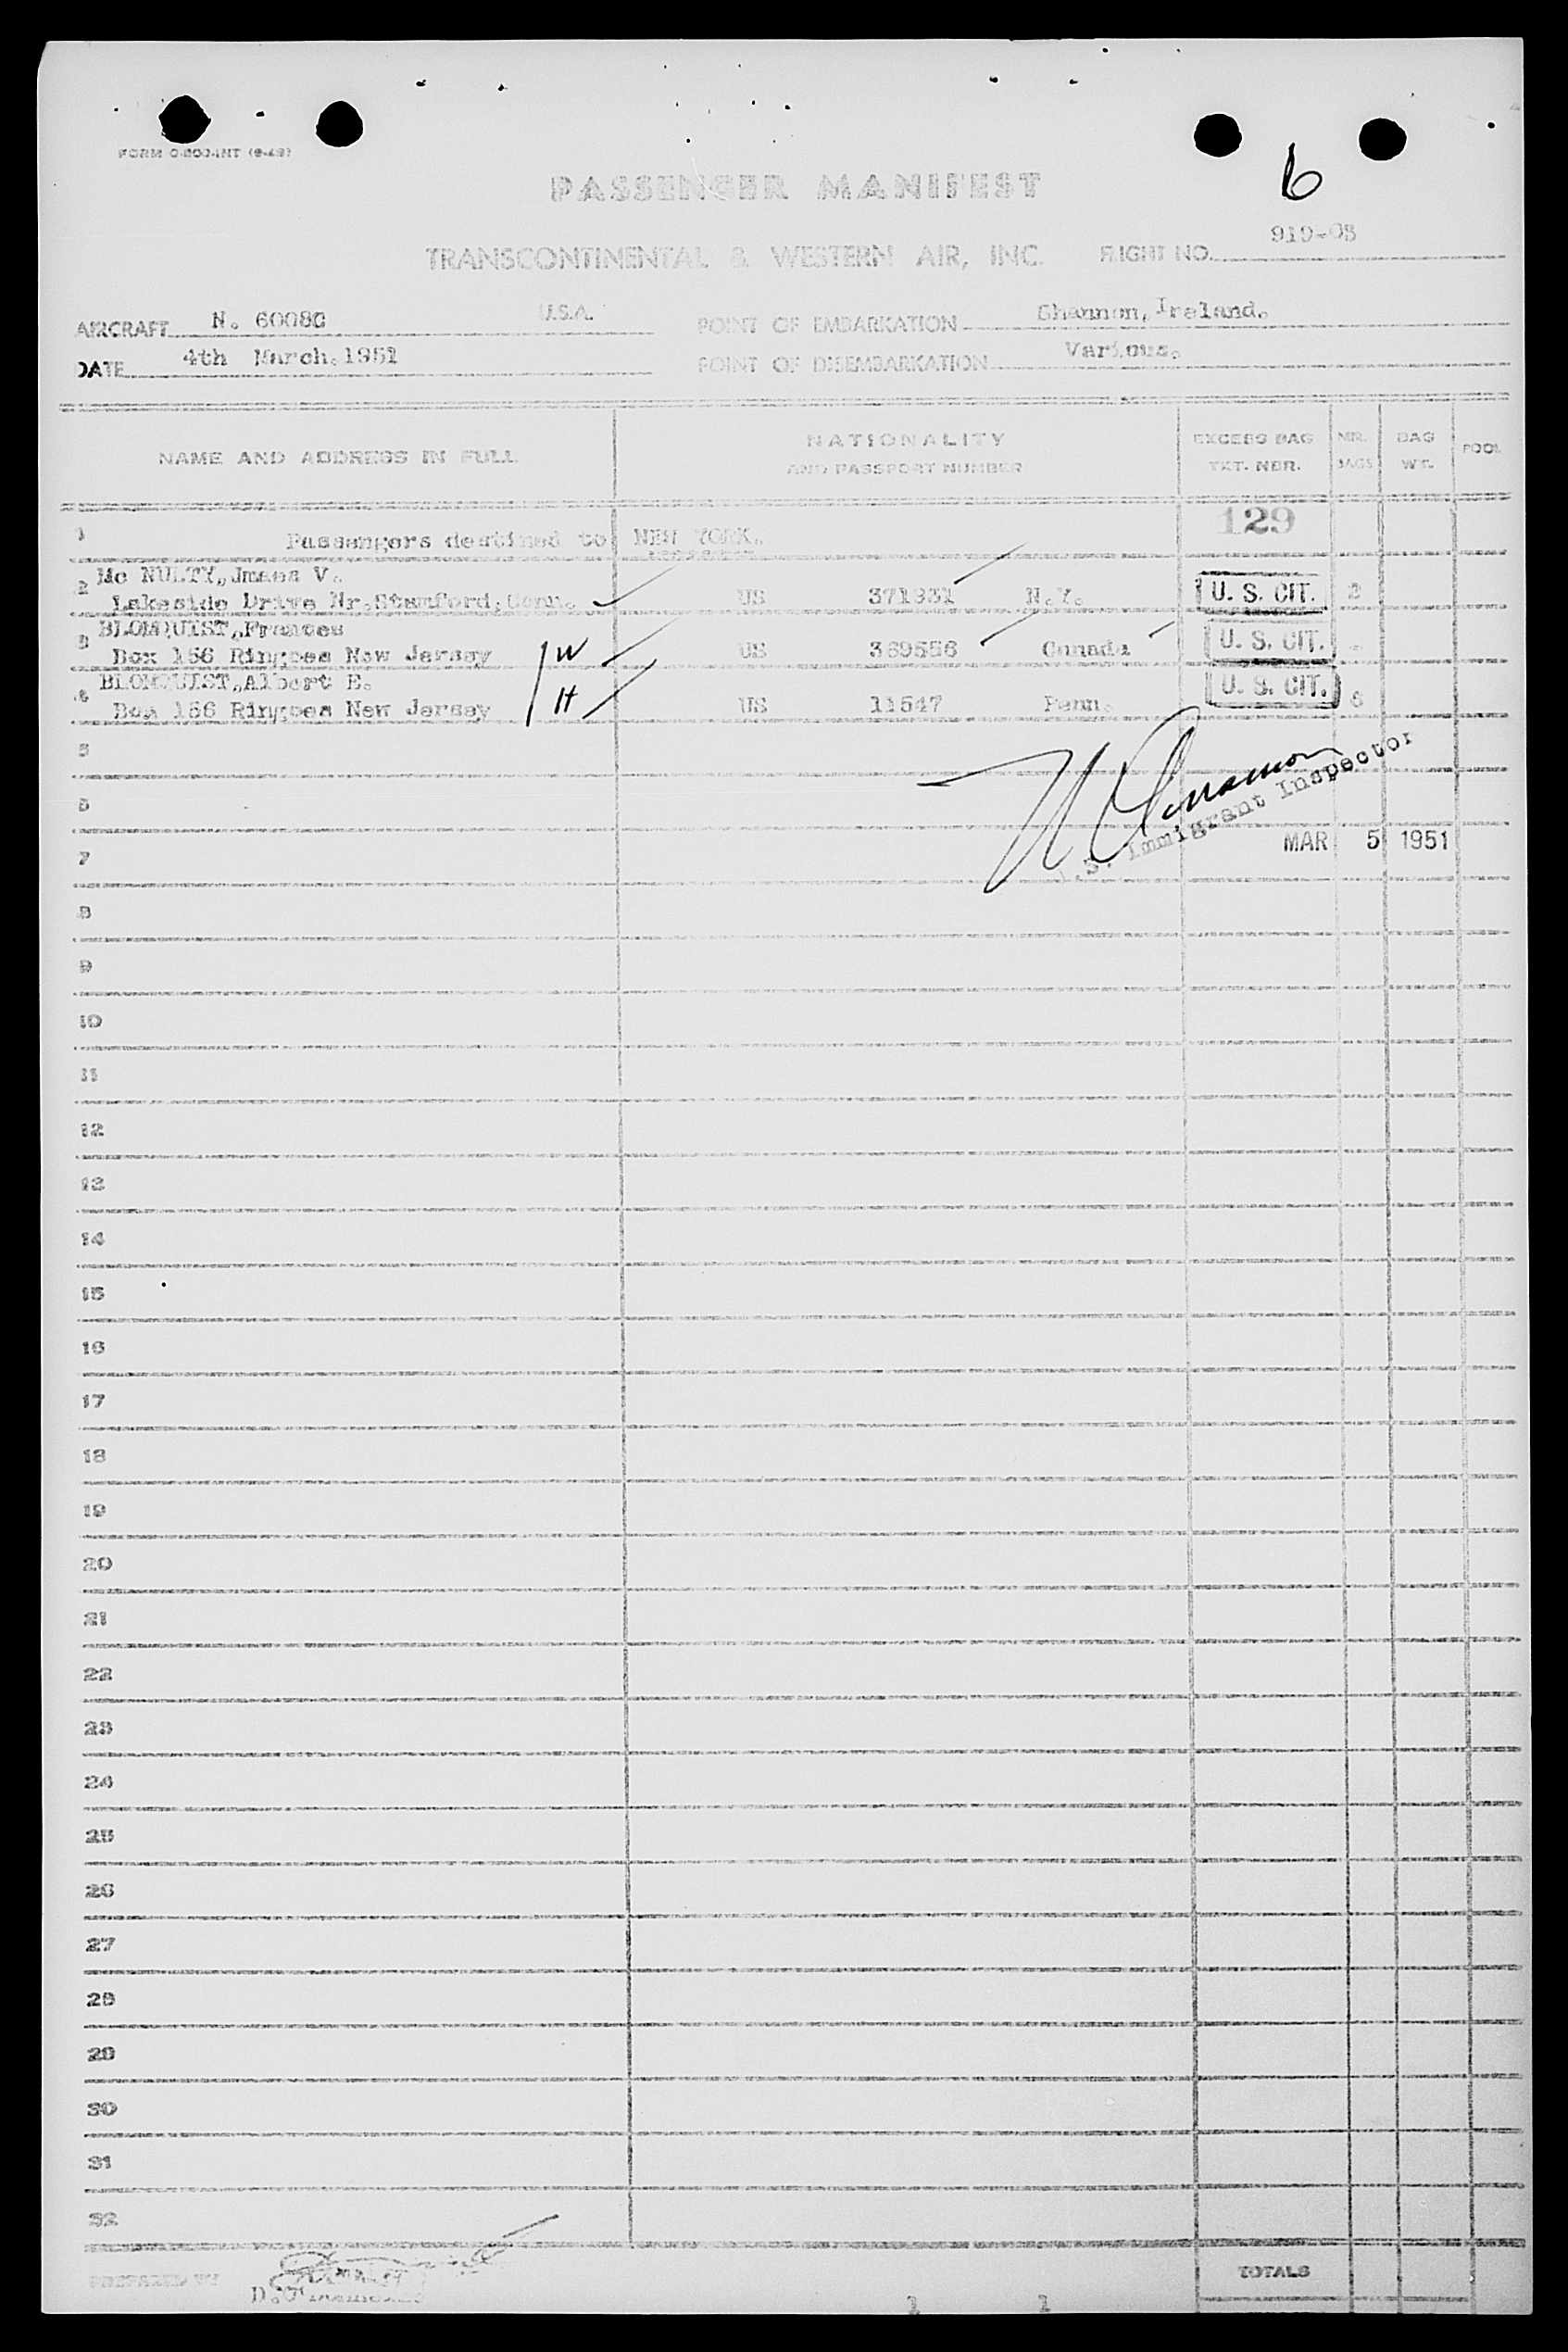 FORM
6
PASSENGER MANIFEST
TRANSCONTINENTAL & WESTERN AIR, INC. FLIGHT NO. 919-03
AIRCRAFT N. 6008C U.S.A. POINT OF EMBARKATION Shannon, Ireland.
DATE 4th March.1951 POINT OF DISEMBARKATION Various.
NAME AND ADDRESS IN FULL NATIONALITY AND PASSPORT NUMBER EXCESS BAG TKT. NBR. NR. BAGS BAG WT. POOL
1 Passengers destined to NEW YORK. 129
2 Mc NULTY,Jmaes V.
Lakeside Drive Nr.Stamford,Conn. US 371931 N.Y. U. S. CIT. 2
3 BLOMQUIST,Frances
Box 156 Ringoes New Jersey W US 369556 Canada U. S. CIT.
4 BLOMQUIST,Albert E.
Box 156 Ringoes New Jersey H US 11547 Penn. U. S. CIT. 6
5
6
U.S. Immigrant Inspector
7 MAR 5 1951
8
9
10
11
12
13
14
15
16
17
18
19
20
21
22
23
24
25
26
27
28
29
30
31
32
PREPARED BY TOTALS
1 1